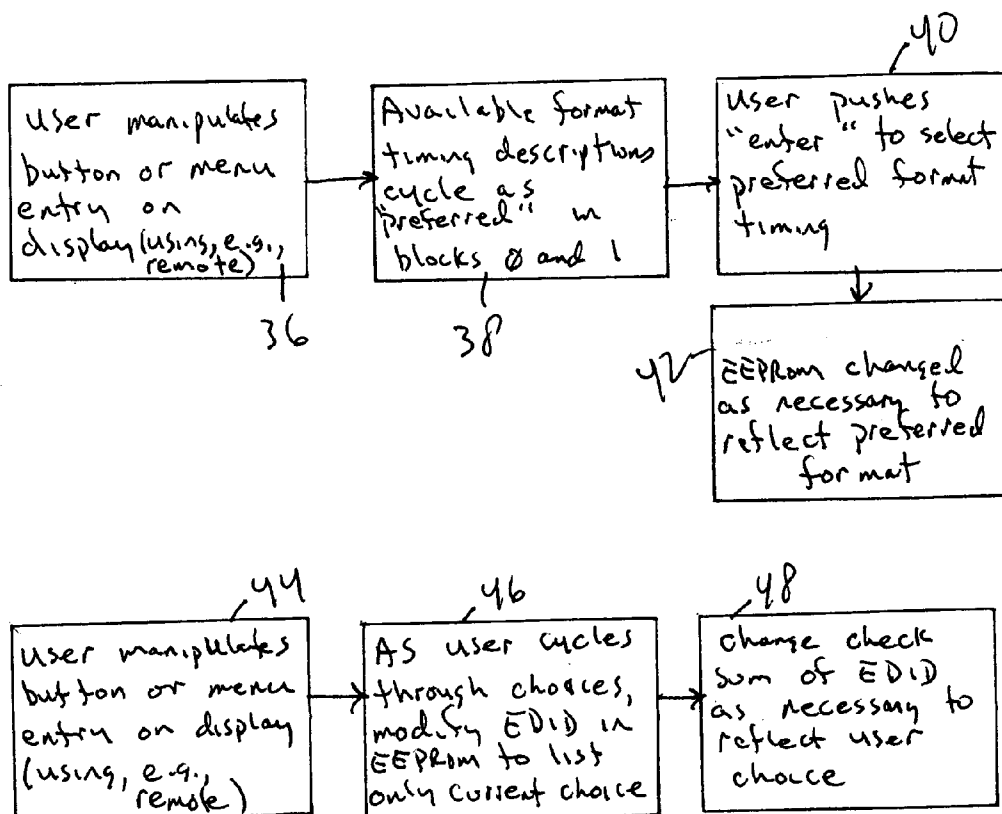 40
User manipulates
button or menu
entry on
display (using, e.g.,
remote)
36
Available format
timing descriptions
cycle as
"preferred" in
blocks 0 and 1
38
User pushes
"enter" to select
preferred format
timing
42
EEPROM changed
as necessary to
reflect preferred
format
44
User manipulates
button or menu
entry on display
(using, e.g.,
remote)
46
AS user cycles
through choices,
modify EDID in
EEPROM to list
only current choice
48
change check
sum of EDID
as necessary to
reflect user
choice